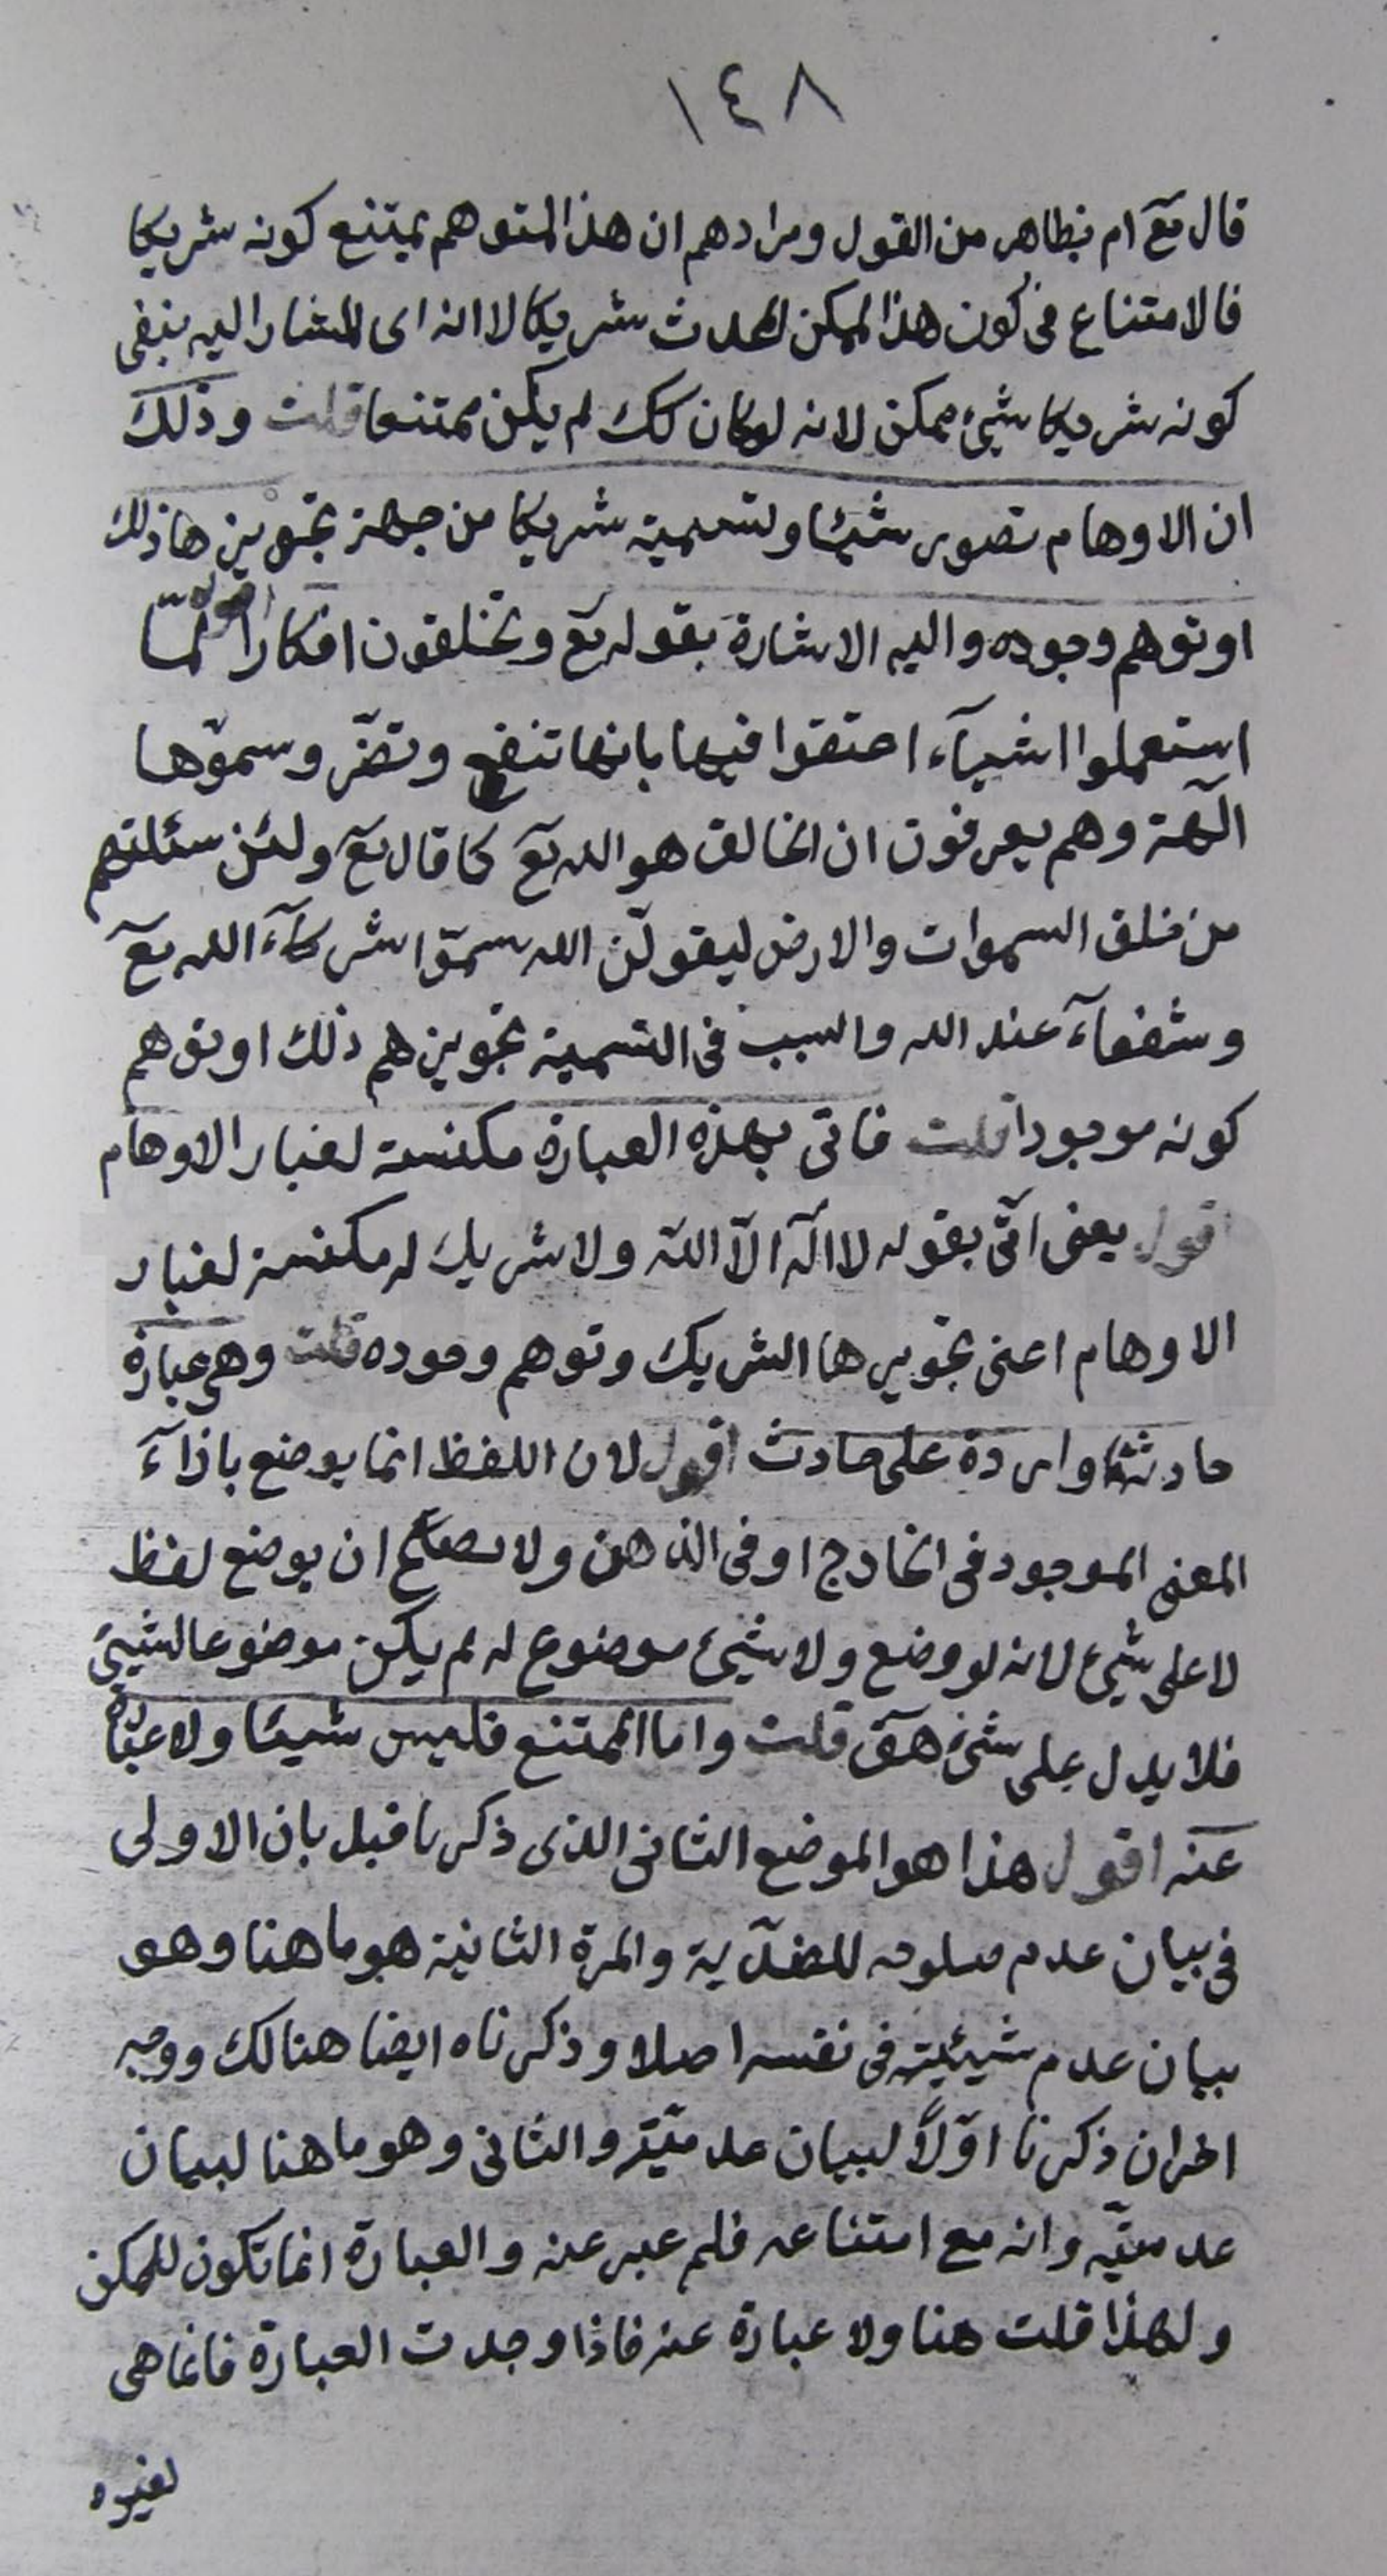 ١٤٨
قال تع ام بظاهر من القول ومرادهم ان هذا المتوهم يمتنع كونه شريكا
فالامتناع فى كون هذا الممكن المحدث شريكا لا انه اى المشار اليه بنفى
كونه شريكا شيئ ممكن لانه لو كان كك لم يكن ممتنعا قلت وذلك
ان الاوهام تصور شيئا وتسميه شريكا من جهة تجويزها ذلك
او توهم وجوده واليه الاشارة بقوله تع وتخلقون افكا اقول لما
استعملوا اشيآء اعتقوا فيها بانها تنفع وتضر وسموها
آلهة وهم يعرفون ان الخالق هو الله تع كما قال تع ولئن سئلتهم
من خلق السموات والارض ليقولن الله سموا شركآء الله تع
وشفعآء عند الله والسبب فى التسمية تجويزهم ذلك او توهم
كونه موجودا قلت فاتى بهذه العبارة مكنسة لغبار الاوهام
اقول يعنى اتى بقوله لا اله الا الله ولا شريك له مكنسة لغبار
الاوهام اعنى تجويزها الشريك وتوهم وجوده قلت وهى عبارة
حادثة واردة على حادث اقول لان اللفظ انما يوضع بازآء
المعنى الموجود فى الخارج او فى الذهن ولا يصلح ان يوضع لفظ
لا على شيئ لانه لو وضع ولا شيئ موضوع له لم يكن موضوعا لشيئ
فلا يدل على شيئ هف قلت واما الممتنع فليس شيئا ولا عبارة
عنه اقول هذا هو الموضع الثانى الذى ذكرنا قبل بان الاولى
فى بيان عدم صلوحه للضدية والمرة الثانية هو ما هنا وهو
بيان عدم شيئيته فى نفسه اصلا وذكرناه ايضا هنالك ووجه
اخر ان ذكرنا اولاً لبيان عدميته والثانى وهو ما هنا لبيان
عدميته وانه مع امتناعه فلم عبر عنه والعبارة انما تكون للممكن
ولهذا قلت هنا ولا عبارة عنه فاذا وجدت العبارة فانما هى
لغيره